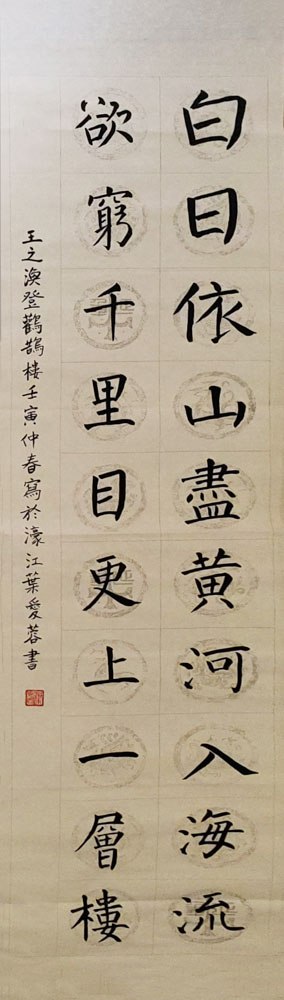 白日依山盡黃河入海流
欲窮千里目更上一層樓
王之渙登鸛鵲樓壬寅仲春寫於濠江葉愛蓉書